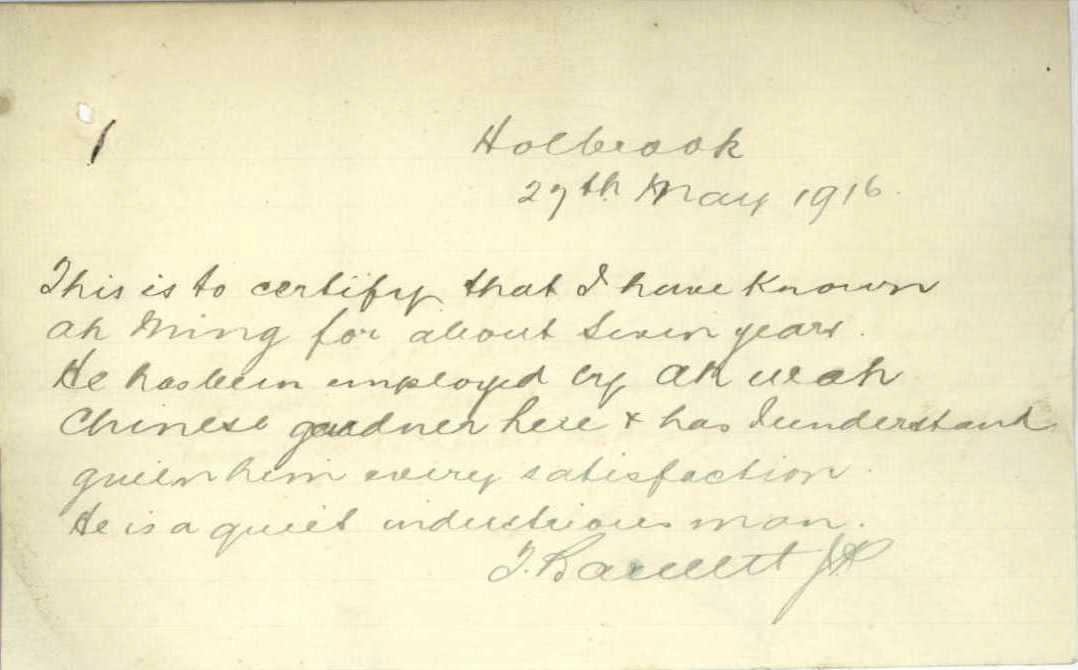 Holbrook
27th May 1916.
This is to certify that I have known
Ah Ming for about seven years.
He has been employed by Ah Wah
Chinese gardner here & has I understand
given him every satisfaction.
He is a quiet industrious man.
T. JP